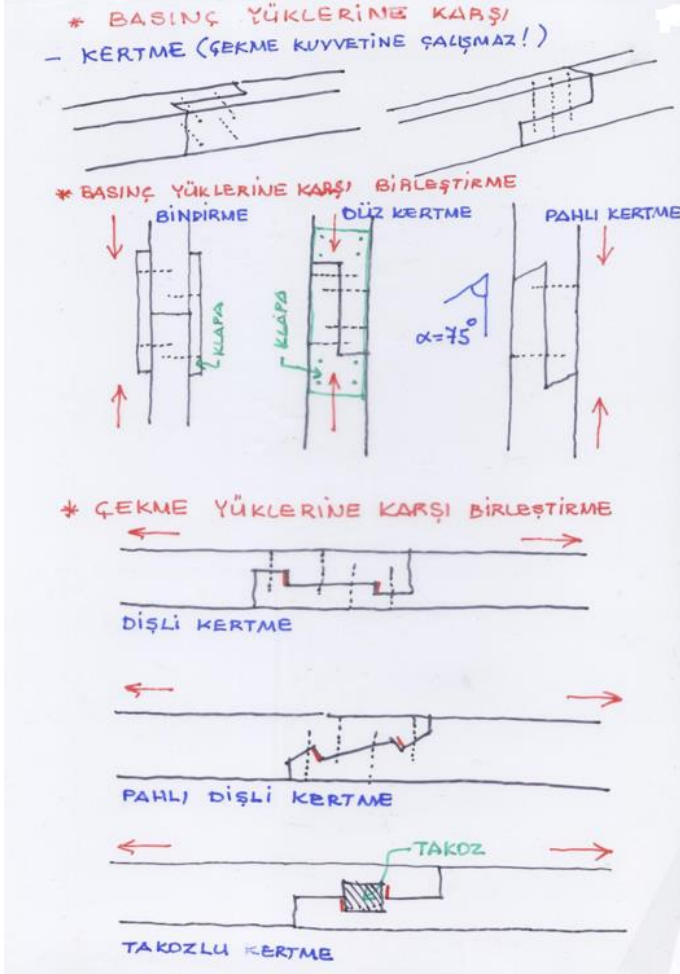 * BASINÇ YÜKLERİNE KARŞI
- KERTME (ÇEKME KUVVETİNE ÇALIŞMAZ!)
* BASINÇ YÜKLERİNE KARŞI BİRLEŞTİRME
BİNDİRME DÜZ KERTME PAHLI KERTME
KLAPA KLAPA α=75°
* ÇEKME YÜKLERİNE KARŞI BİRLEŞTİRME
DİŞLİ KERTME
PAHLI DİŞLİ KERTME
TAKOZ
TAKOZLU KERTME